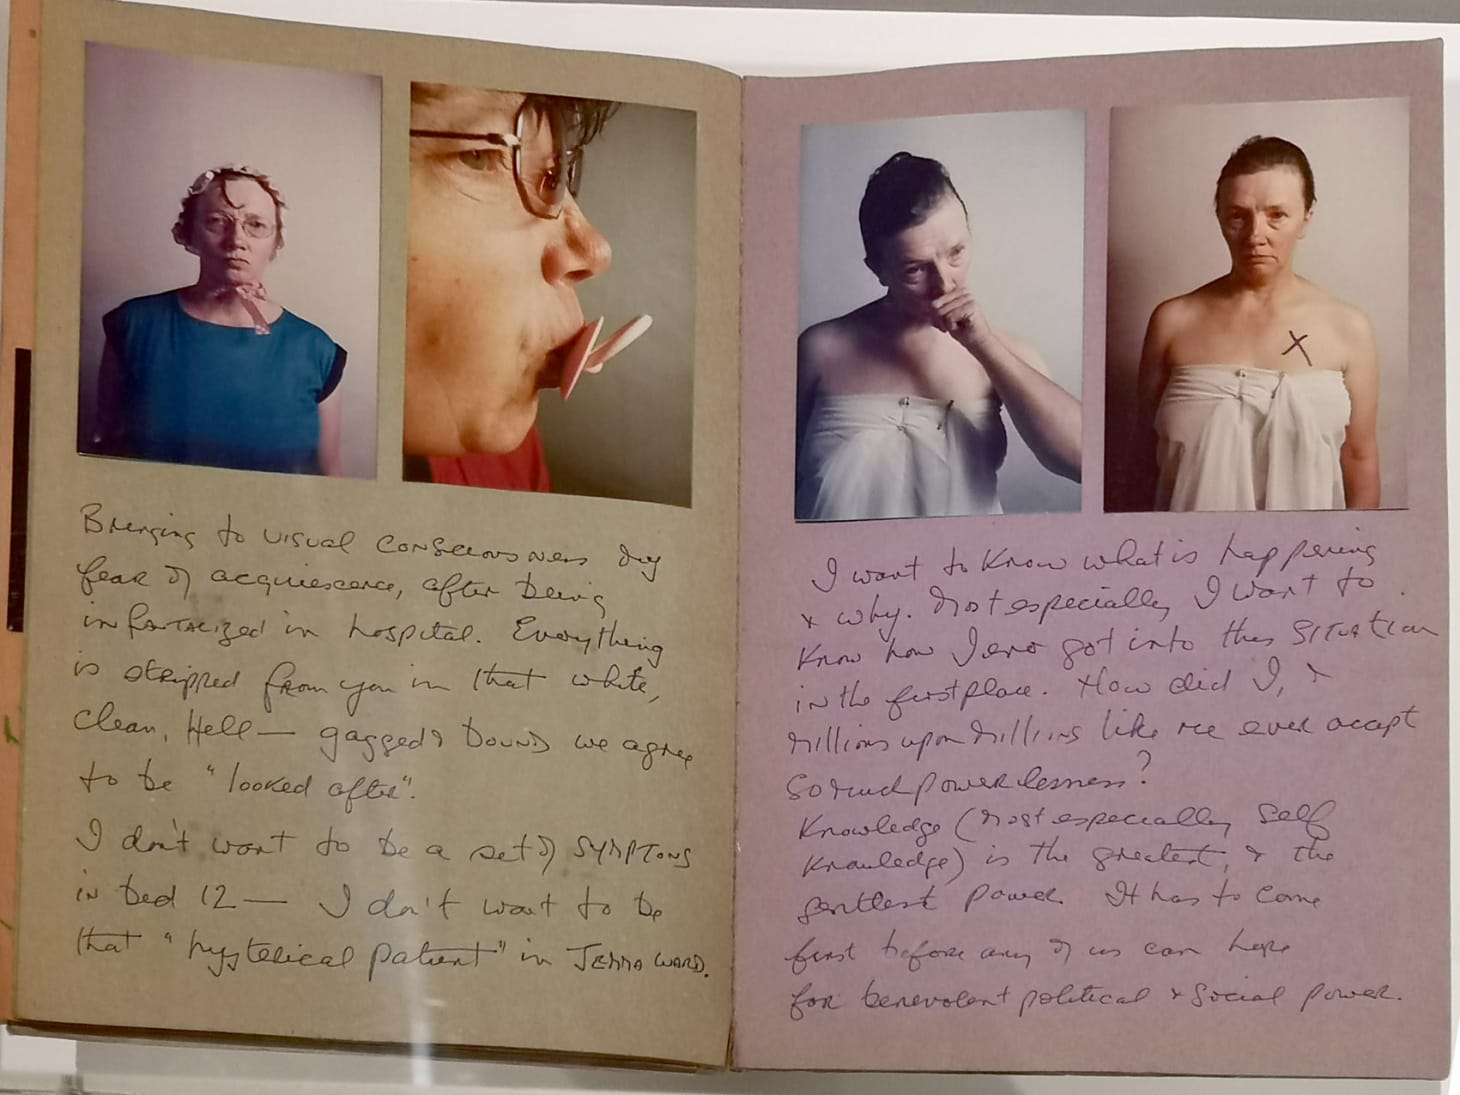 Bringing to visual consciousness my
fear of acquiescence, after being
infantalized in hospital. Everything
is stripped from you in that white,
clean, Hell — gagged & bound we agree
to be "looked after".
I don't want to be a set of SYMPTOMS
in bed 12 — I don't want to be
that "hysterical patient" in JENNA WARD.
I want to know what is happening
& why. Most especially I want to
know how I ever got into this situation
in the first place. How did I, &
millions upon millions like me ever accept
so much powerlessness?
Knowledge (most especially self
knowledge) is the greatest, & the
gentlest power. It has to come
first before any of us can hope
for benevolent political & social power.
X